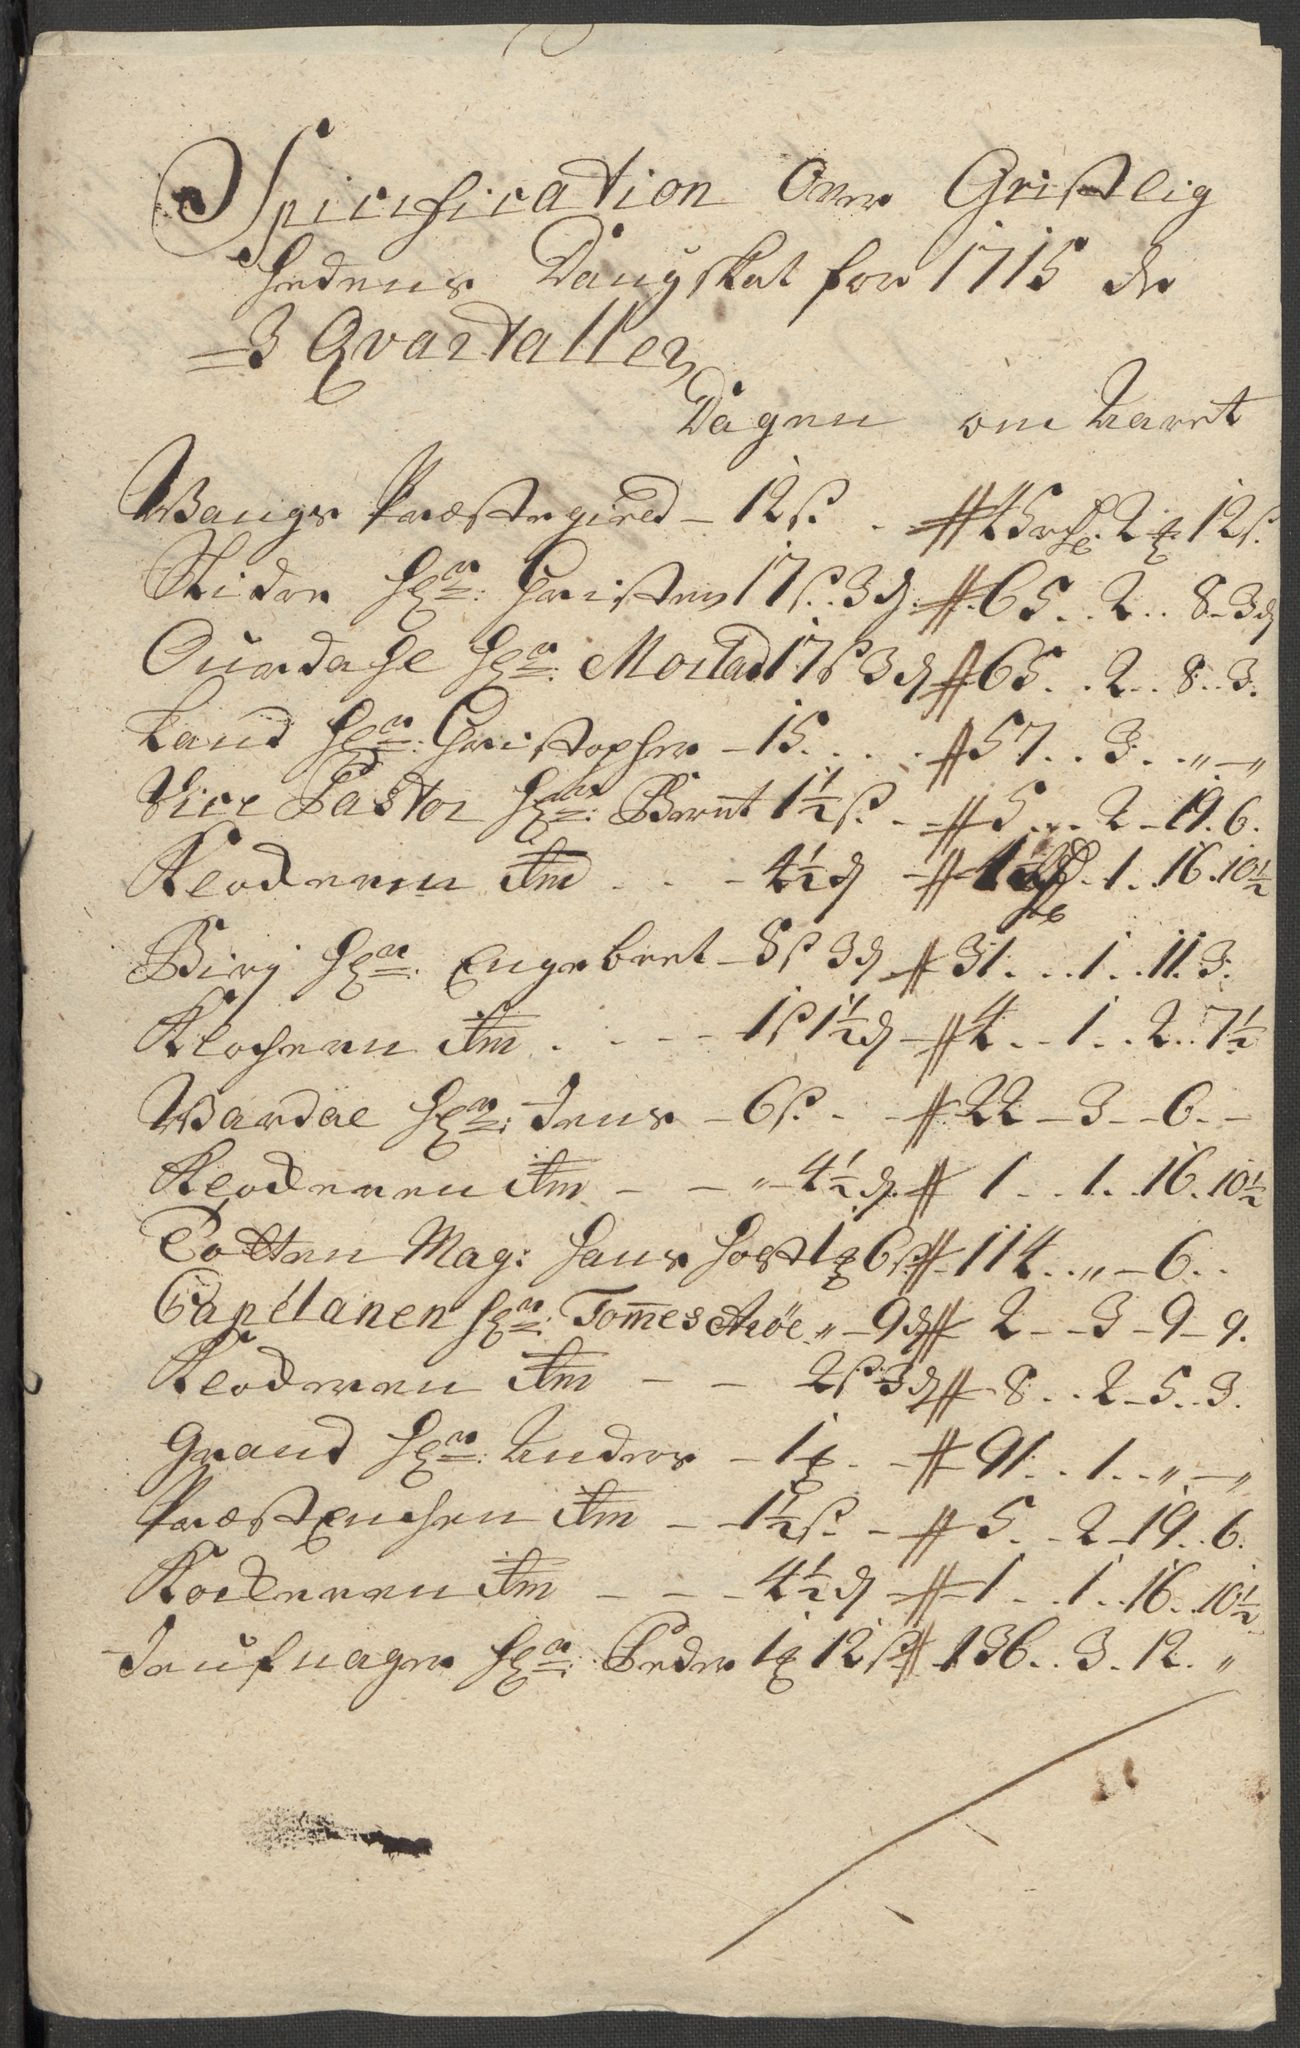 Specification Over Geistlig
hedens Dangskat for 1715 de
3 Qvartaller
Dagen om Aaret
Wangs Præstegield – 12 s. # 45 rd. 2 ꝑ 12 s.
Slidre Hr: Christen 17 s. 3 d. # 65 . . 2 . . 8 . 3 d
Ourdahl Hr: 17 s 3 d # 65 . . 2 . . 8 . . 3 .
Land Hr: Christopher – 15 . . . . # 57 . . 3 . . „ – „
Vice Pastor Hr: Bernt 1½ s. – # 5 . . . 2 – 19 . 6 .
Klockeren ibm . . . – 4½ d – # 1 . 1 . . 16 . 10½
Biri Hr: Engebret – 8 s 3 d # 31 . . . 1 . . 11 . 3 .
Klocheren ibm . . – – – 1 s 1½ d – # 4 . . 1 . . 2 . . 7½
Wardæl Hr: Jens – 6 s. . . # 22 – 3 – 6 . –
Klockeren ibm – – „ – 4½ d . # 1 . . 1 . . 16 . 10½
Totten Mag: Hans Host 1 ꝑ 6 s # 114 . . „ – 6 . .
Capelanen Hr: Tom̄es „ – 9 d # 2 – – 3 – 9 – 9 .
Klockeren ibm – – 2 s 3 d # 8 . . 2 – 5 . . 3 .
Grand Hr: Anders – 1 ꝑ . – # 91 . . 1 . . „ – „
Præst Enchen ibm – – 1½ s. – # 5 . . 2 – 19 . . 6 .
Klockeren ibm – – – 4½ d – # 1 . . 1 . . 16 . . 10½
Jeufnager Hr: Peder 1 ꝑ 12 s # 136 . . 3 . 12 . „